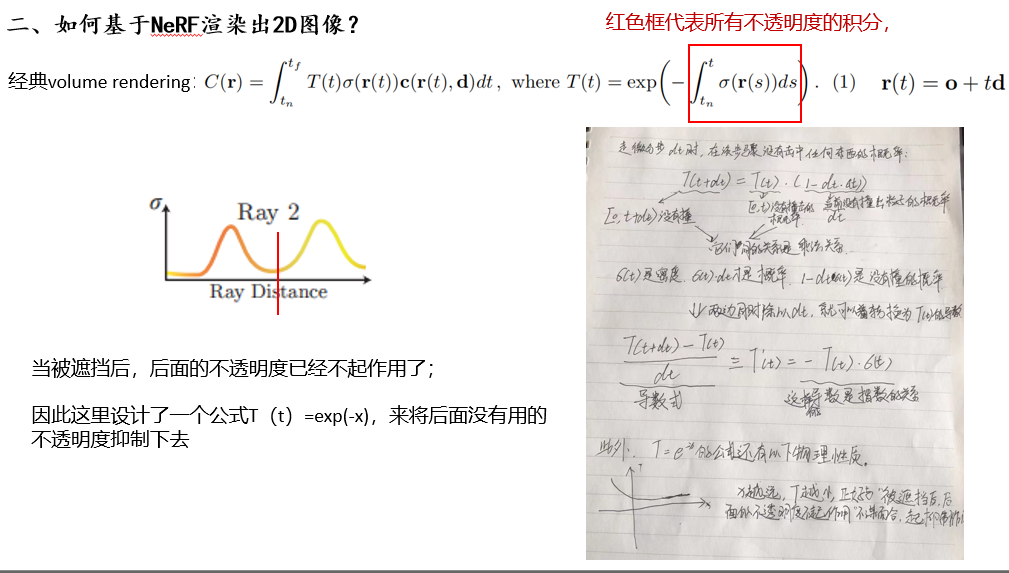 二、如何基于NeRF渲染出2D图像？
红色框代表所有不透明度的积分，
经典volume rendering: C(r) = ∫_{t_n}^{t_f} T(t)σ(r(t))c(r(t), d)dt , where T(t) = exp(−∫_{t_n}^{t} σ(r(s))ds) . (1) r(t) = o + td
σ
Ray 2
Ray Distance
当被遮挡后，后面的不透明度已经不起作用了；
因此这里设计了一个公式T（t）=exp(-x)，来将后面没有用的
不透明度抑制下去
走微分步 dt时，在该步骤没有击中任何东西的概率：
T(t+dt) = T(t) · (1-dt·6(t))
[0, t+dt)没有撞
[0,t)没有撞击的概率
当前没有撞上粒子的概率
dt
它们之间的关系是乘法关系.
6(t)是密度，6(t)·dt才是概率，1-dt6(t)是没有撞的概率
⇓ 两边同时除以dt，就可以转换为T(t)的导数
T(t+dt) - T(t) / dt ≡ T'(t) = - T(t)·6(t)
导数式
导数是指数的关系
此外，T=e^{-x}的公式还有以下物理性质。
T
x
x越远，T越小，正好与"被遮挡后，后
面的不透明度不起作用"不谋而合，起抑制作用